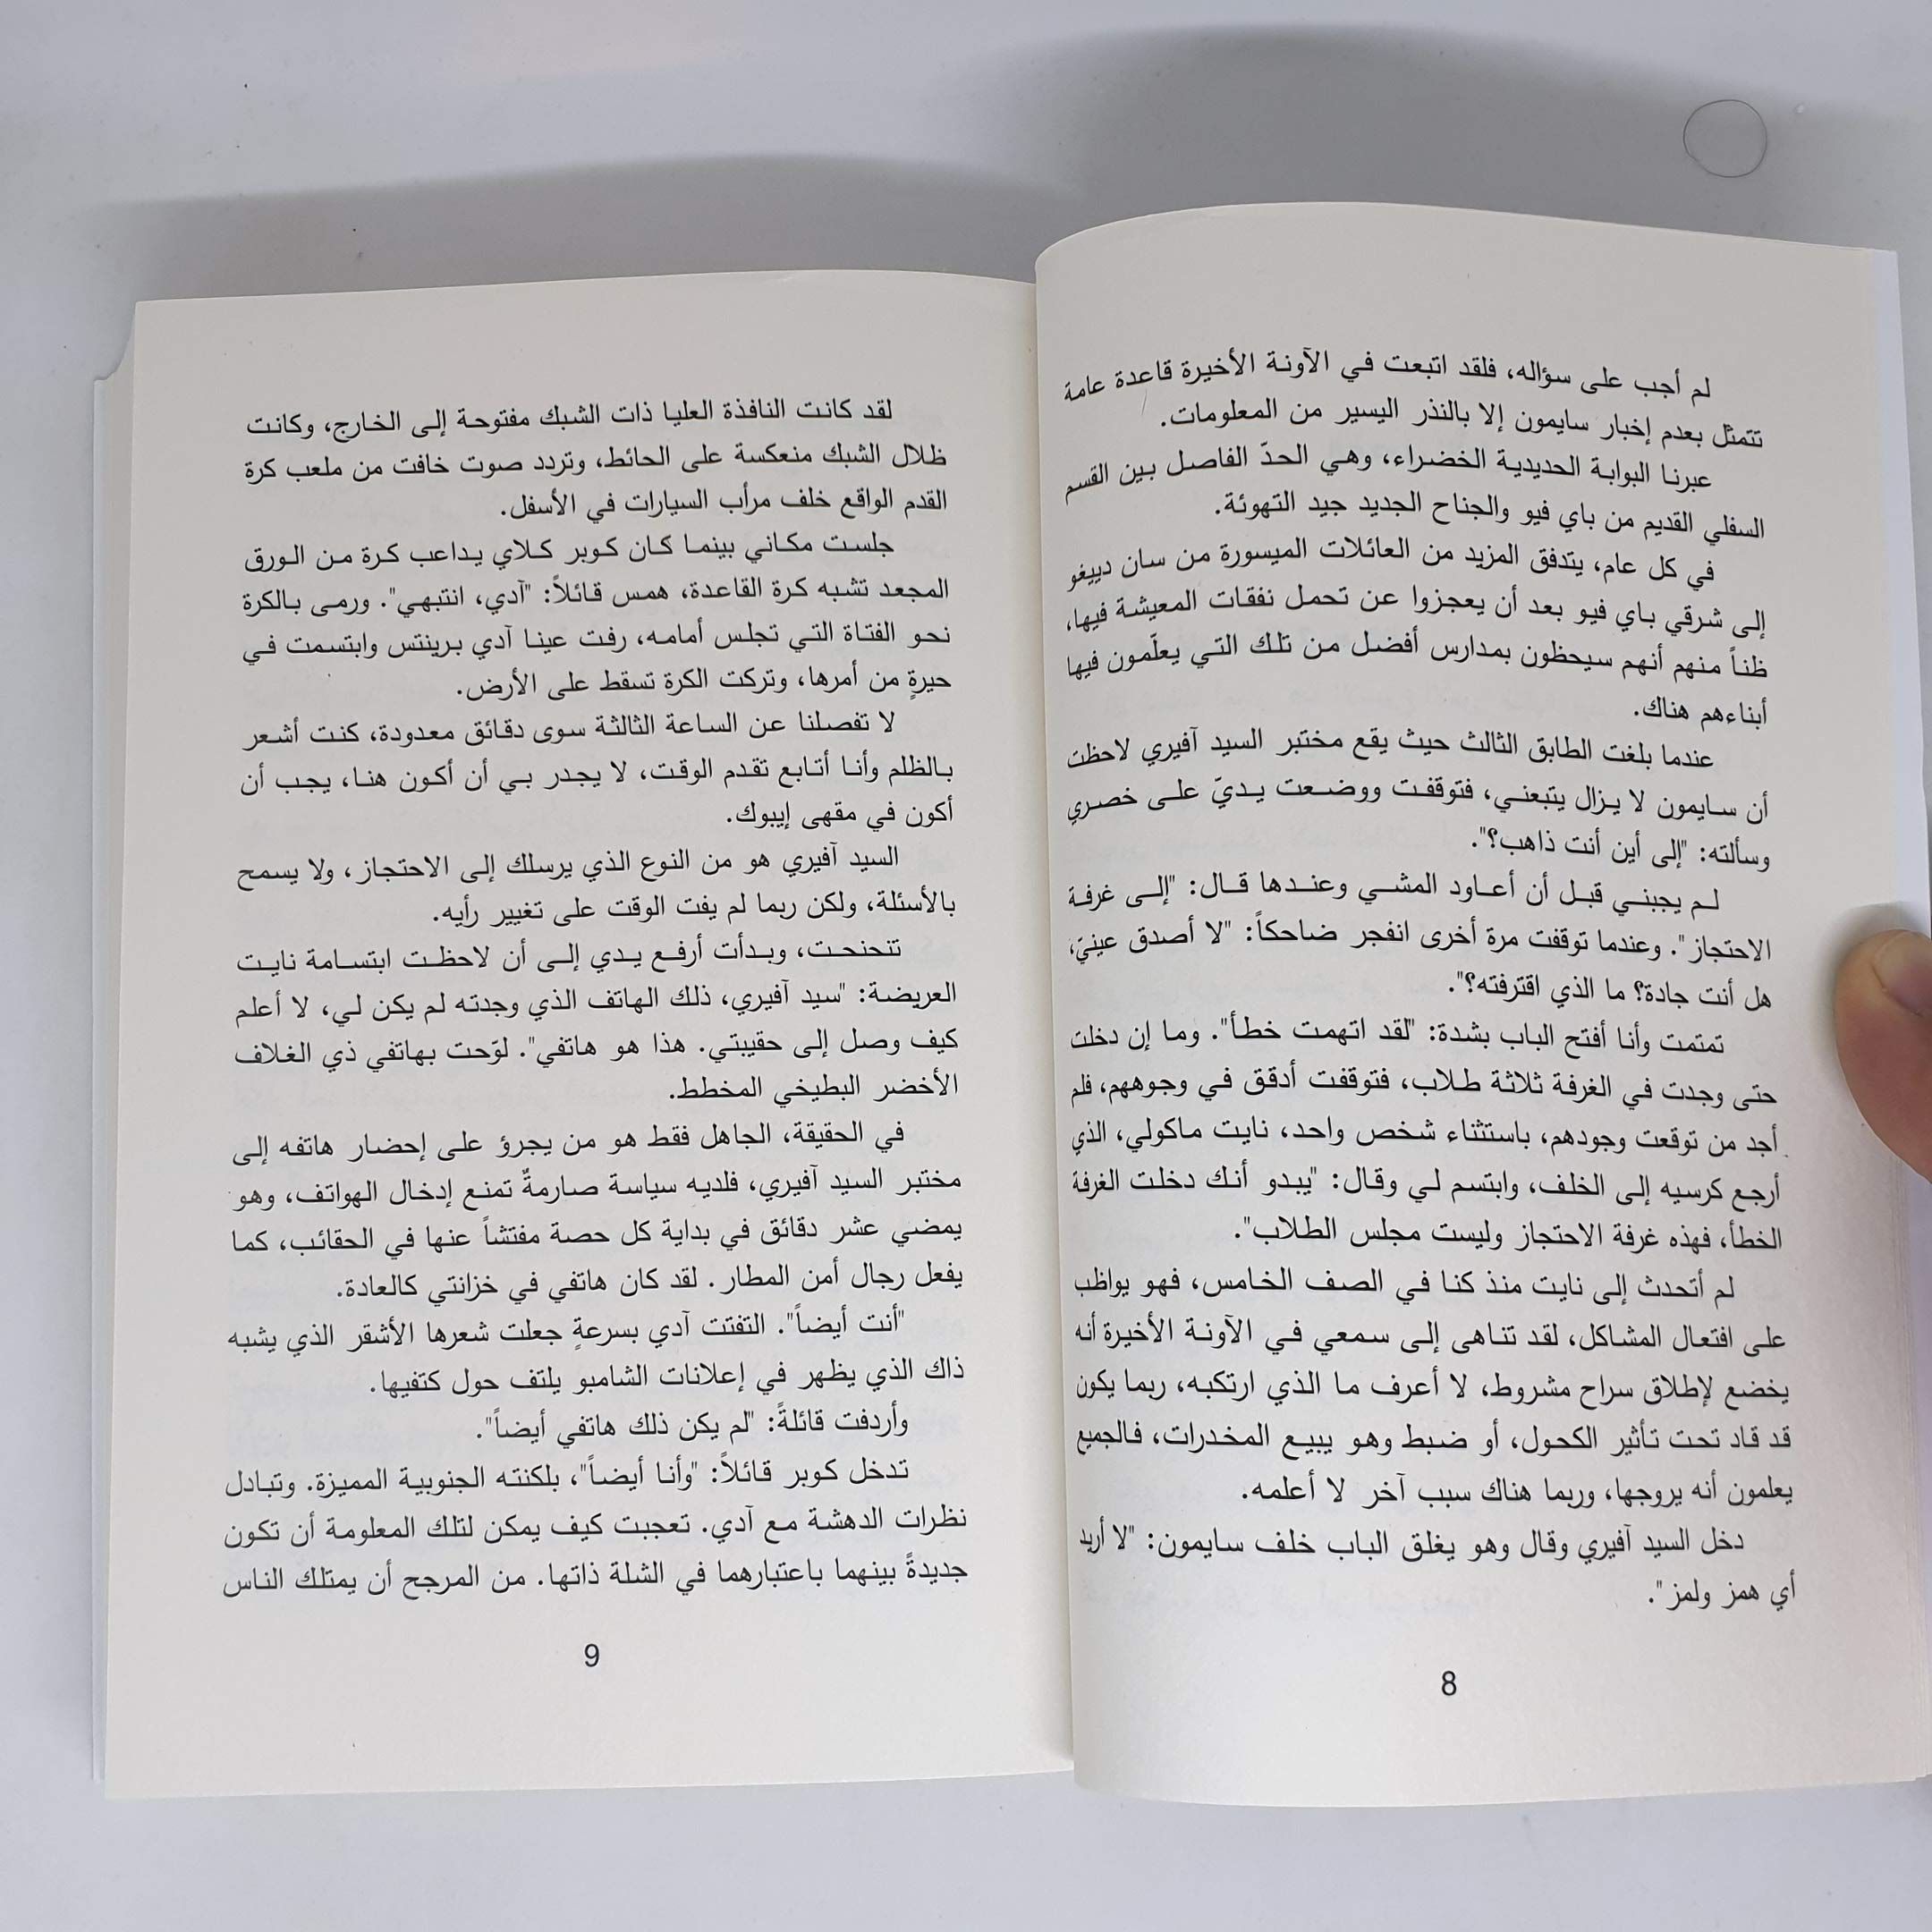 لم أجب على سؤاله، فلقد اتبعت في الآونة الأخيرة قاعدة عامة
تتمثّل بعدم إخبار سايمون إلا بالنذر اليسير من المعلومات.
عبرنا البوابة الحديدية الخضراء، وهي الحدّ الفاصل بين القسم
السفلي القديم من باي فيو والجناح الجديد جيد التهوئة.
في كل عام، يتدفق المزيد من العائلات الميسورة من سان دييغو
إلى شرقي باي فيو بعد أن يعجزوا عن تحمل نفقات المعيشة فيها،
ظناً منهم أنهم سيحظون بمدارس أفضل من تلك التي يعلّمون فيها
أبناءهم هناك.
عندما بلغت الطابق الثالث حيث يقع مختبر السيد آفيري لاحظت
أن سايمون لا يزال يتبعني، فتوقفت ووضعت يديّ على خصري
وسألته: "إلى أين أنت ذاهب؟".
لم يجبني قبل أن أعاود المشي وعندها قال: "إلى غرفة
الاحتجاز". وعندما توقفت مرة أخرى انفجر ضاحكاً: "لا أصدق عينيّ،
هل أنت جادة؟ ما الذي اقترفته؟".
تمتمت وأنا أفتح الباب بشدة: "لقد اتهمت خطأ". وما إن دخلت
حتى وجدت في الغرفة ثلاثة طلاب، فتوقفت أدقق في وجوههم، فلم
أجد من توقعت وجودهم، باستثناء شخص واحد، نايت ماكولي، الذي
أرجع كرسيه إلى الخلف، وابتسم لي وقال: "يبدو أنك دخلت الغرفة
الخطأ، فهذه غرفة الاحتجاز وليست مجلس الطلاب".
لم أتحدث إلى نايت منذ كنا في الصف الخامس، فهو يواظب
على افتعال المشاكل، لقد تناهى إلى سمعي في الآونة الأخيرة أنه
يخضع لإطلاق سراح مشروط، لا أعرف ما الذي ارتكبه، ربما يكون
قد قاد تحت تأثير الكحول، أو ضبط وهو يبيع المخدرات، فالجميع
يعلمون أنه يروجها، وربما هناك سبب آخر لا أعلمه.
دخل السيد آفيري وقال وهو يغلق الباب خلف سايمون: "لا أريد
أي همز ولمز".
8
لقد كانت النافذة العليا ذات الشبك مفتوحة إلى الخارج، وكانت
ظلال الشبك منعكسة على الحائط، وتردد صوت خافت من ملعب كرة
القدم الواقع خلف مرأب السيارات في الأسفل.
جلست مكاني بينما كان كوبر كلاي يداعب كرة من الورق
المجعد تشبه كرة القاعدة، همس قائلاً: "آدي، انتبهي". ورمى بالكرة
نحو الفتاة التي تجلس أمامه، رفت عينا آدي برينتس وابتسمت في
حيرةٍ من أمرها، وتركت الكرة تسقط على الأرض.
لا تفصلنا عن الساعة الثالثة سوى دقائق معدودة، كنت أشعر
بالظلم وأنا أتابع تقدم الوقت، لا يجدر بي أن أكون هنا، يجب أن
أكون في مقهى إيبوك.
السيد آفيري هو من النوع الذي يرسلك إلى الاحتجاز، ولا يسمح
بالأسئلة، ولكن ربما لم يفت الوقت على تغيير رأيه.
تنحنحت، وبدأت أرفع يدي إلى أن لاحظت ابتسامة نايت
العريضة: "سيد آفيري، ذلك الهاتف الذي وجدته لم يكن لي، لا أعلم
كيف وصل إلى حقيبتي. هذا هو هاتفي". لوّحت بهاتفي ذي الغلاف
الأخضر البطيخي المخطط.
في الحقيقة، الجاهل فقط هو من يجرؤ على إحضار هاتفه إلى
مختبر السيد آفيري، فلديه سياسة صارمةٌ تمنع إدخال الهواتف، وهو
يمضي عشر دقائق في بداية كل حصة مفتشاً عنها في الحقائب، كما
يفعل رجال أمن المطار. لقد كان هاتفي في خزانتي كالعادة.
"أنت أيضاً". التفتت آدي بسرعةٍ جعلت شعرها الأشقر الذي يشبه
ذاك الذي يظهر في إعلانات الشامبو يلتف حول كتفيها.
وأردفت قائلةً: "لم يكن ذلك هاتفي أيضاً".
تدخل كوبر قائلاً: "وأنا أيضاً"، بلكنته الجنوبية المميزة. وتبادل
نظرات الدهشة مع آدي. تعجبت كيف يمكن لتلك المعلومة أن تكون
جديدةً بينهما باعتبارهما في الشلة ذاتها. من المرجح أن يمتلك الناس
9